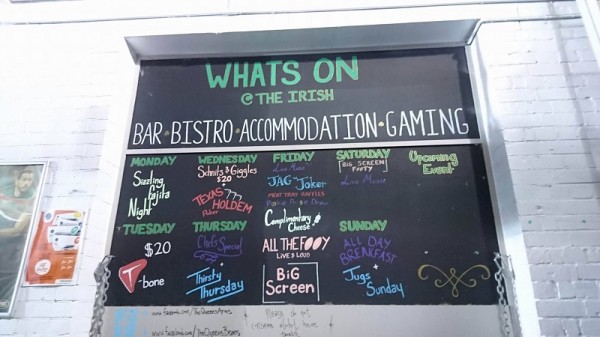 WHATS ON
@ THE IRISH
BAR · BISTRO · ACCOMMODATION · GAMING
MONDAY
Sizzling
Fajita
Night
TUESDAY
$20
T-bone
WEDNESDAY
Schnits & Giggles
$20
TEXAS
HOLDEM
Poker
THURSDAY
Chefs Special
Thirsty
Thursday
FRIDAY
JAG the Joker
MEAT TRAY RAFFLES
Complimentary
Cheese
ALL THE FOOY
LIVE & LOUD
BiG
Screen
SATURDAY
BIG SCREEN
FOOTY
Live Music
SUNDAY
ALL DAY
BREAKFAST
Jugs +
Sunday
Upcoming
Event